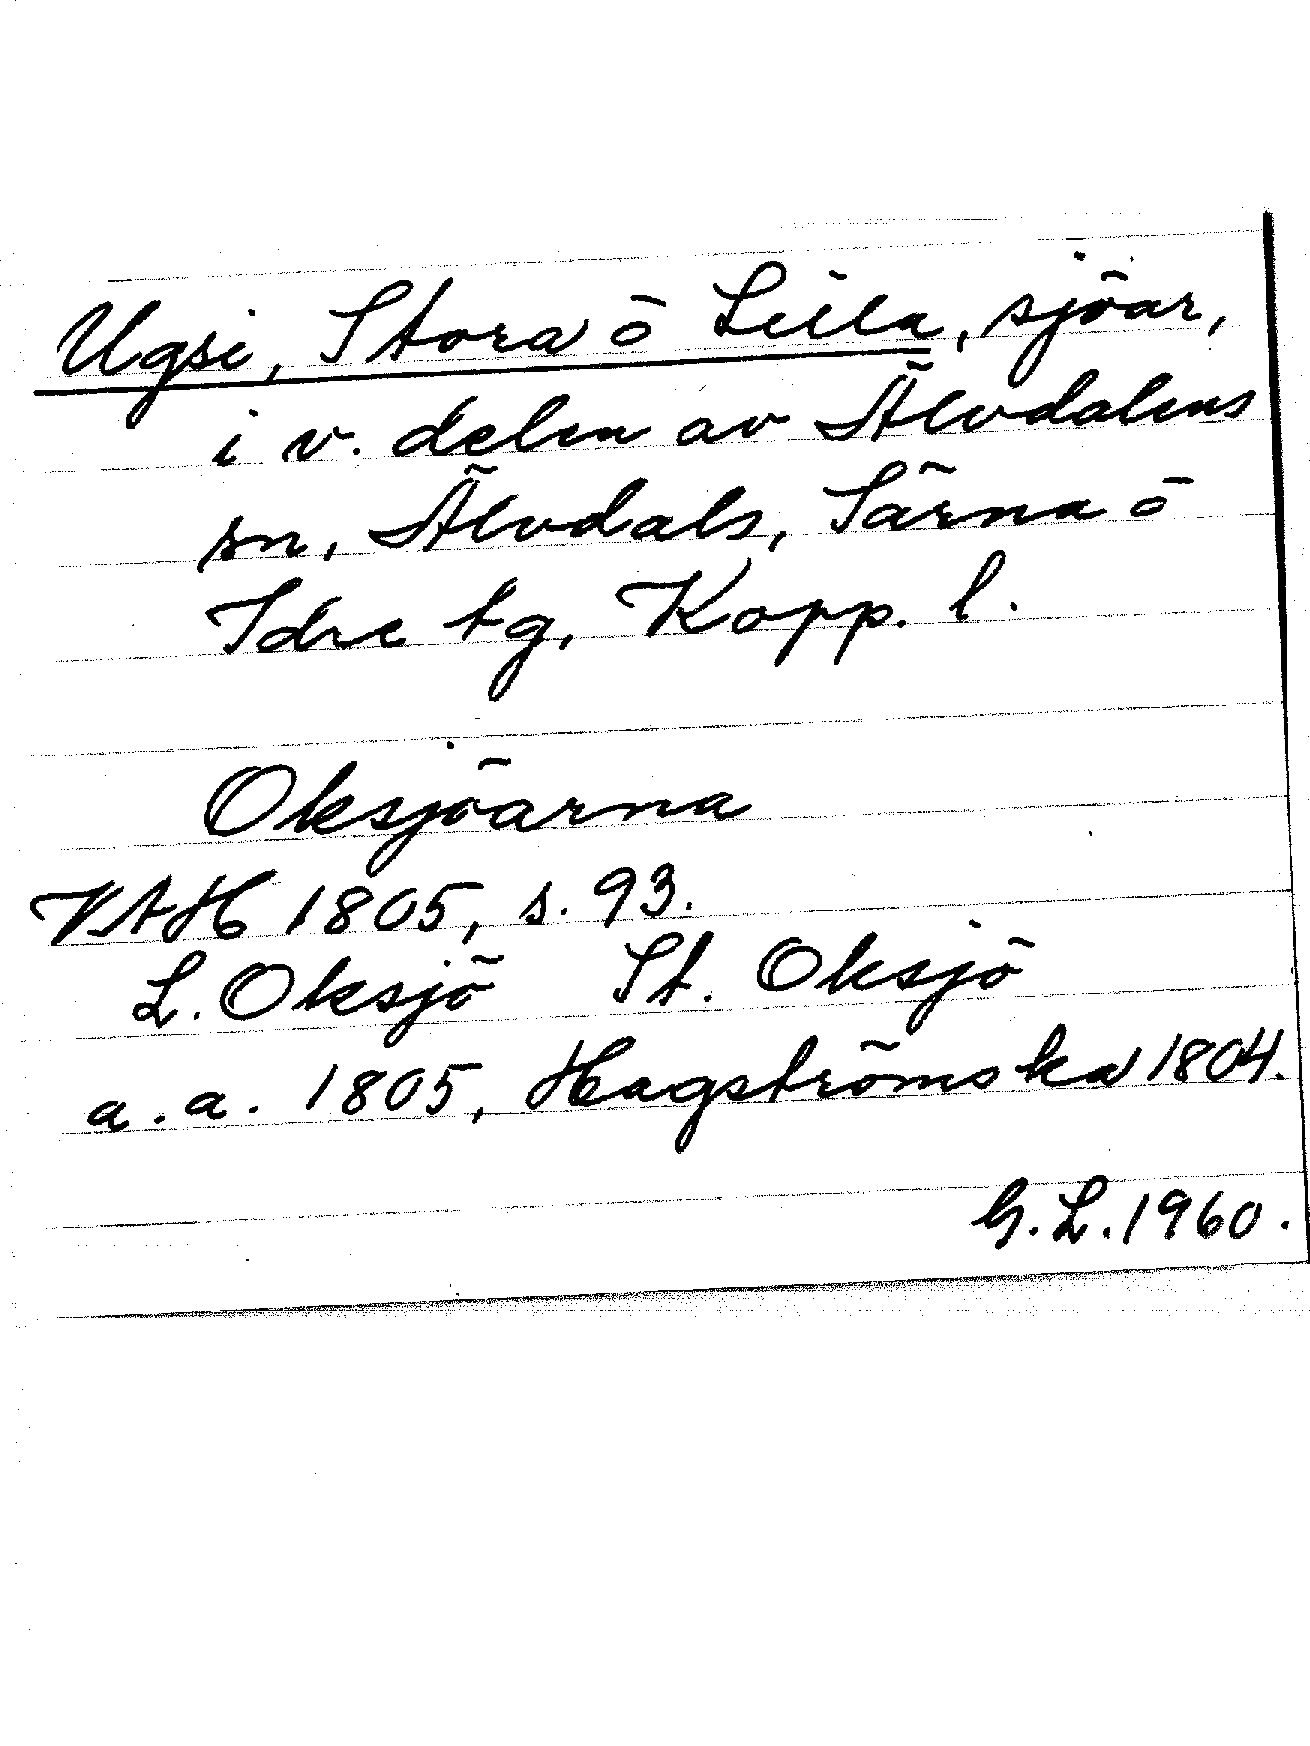 Ugsi, Stora ō Lilla, sjöar,
i v. delen av Älvdalens
sn, Älvdals, Särna ō
Idre tg, Kopp. l.
Oksjöarna
VAH 1805, s. 93.
L. Oksjö St. Oksjö
a. a. 1805, Hagströmska 1804.
G. L. 1960.